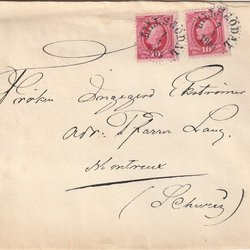 Fröken Ingegerd Ekströmer
adr: Pfarrer Lang.
Montreux
(Schweiz)
10 10